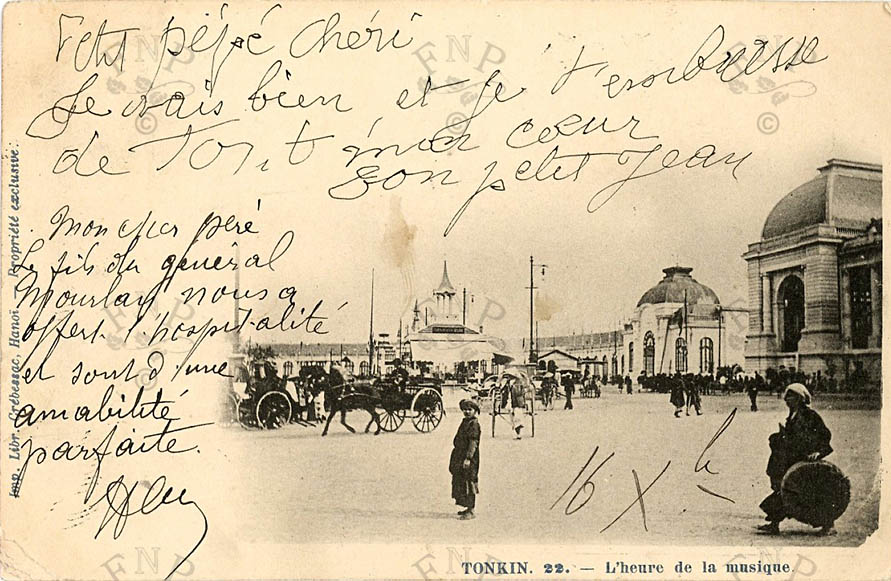 Petit pépé chéri
Je vais bien et je t'embrasse
de tout mon cœur
son petit Jean
Mon cher péré
le fils du général
Mourlan nous a
offert l'hospitalité
et sont d'une
amabilité
parfaite.
16 X
TONKIN. 22. — L'heure de la musique.
Imp. Libr. Crébessac, Hanoï. Propriété exclusive.
FNP
©